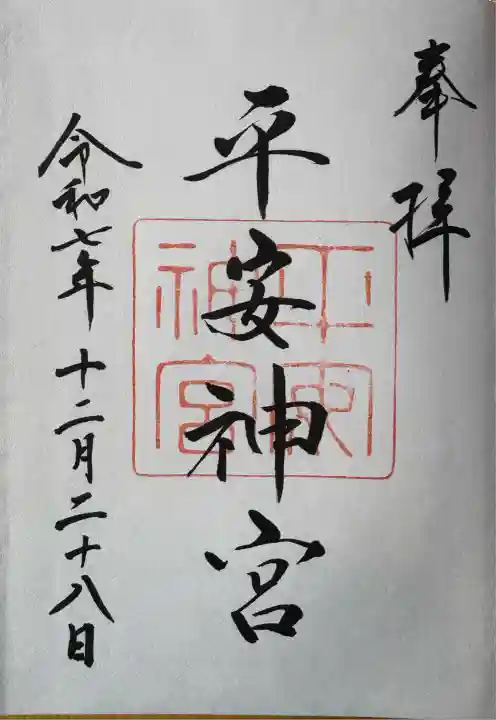 奉拝
平安神宮
平安神宮
令和七年十二月二十八日